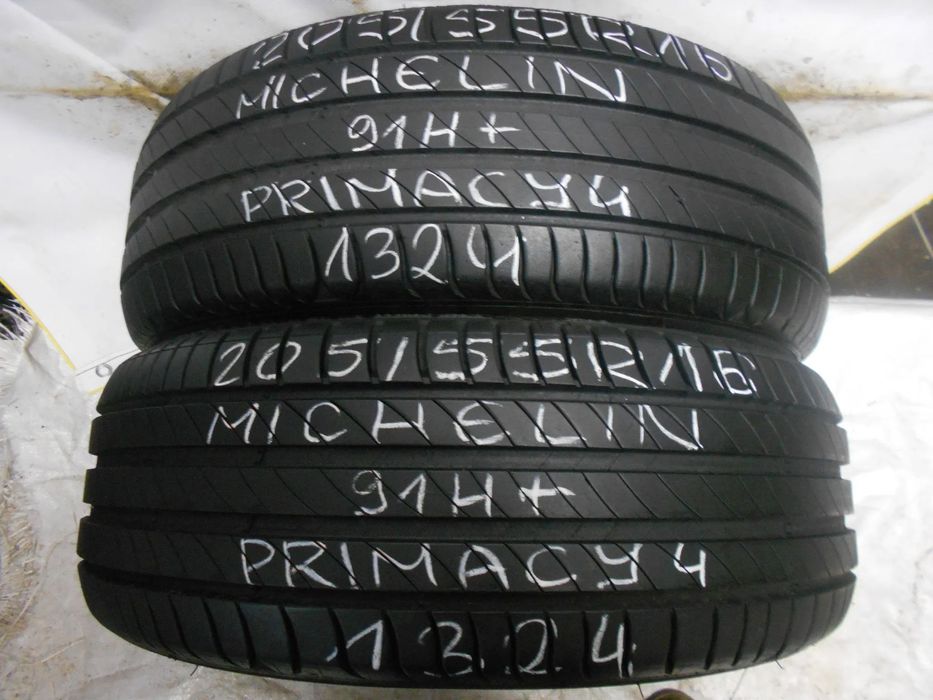 205/55R16
MICHELIN
91H+
PRIMACY4
1324
205/55R/16
MICHELIN
91H+
PRIMACY4
1324